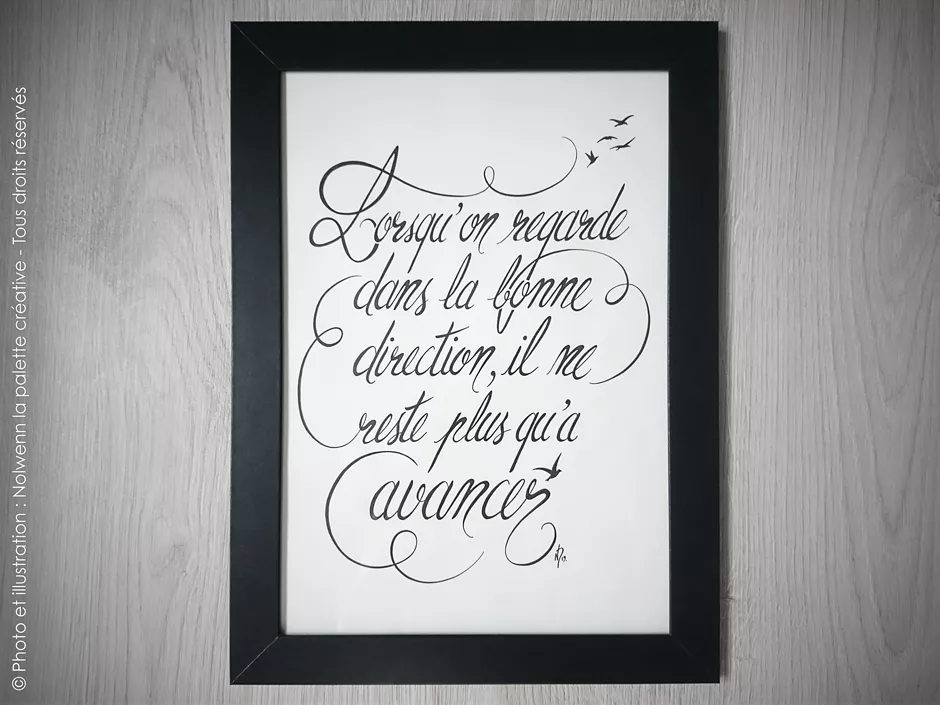 Lorsqu'on regarde
dans la bonne
direction, il ne
reste plus qu'à
avancer
© Photo et illustration : Nolwenn la palette créative - Tous droits réservés